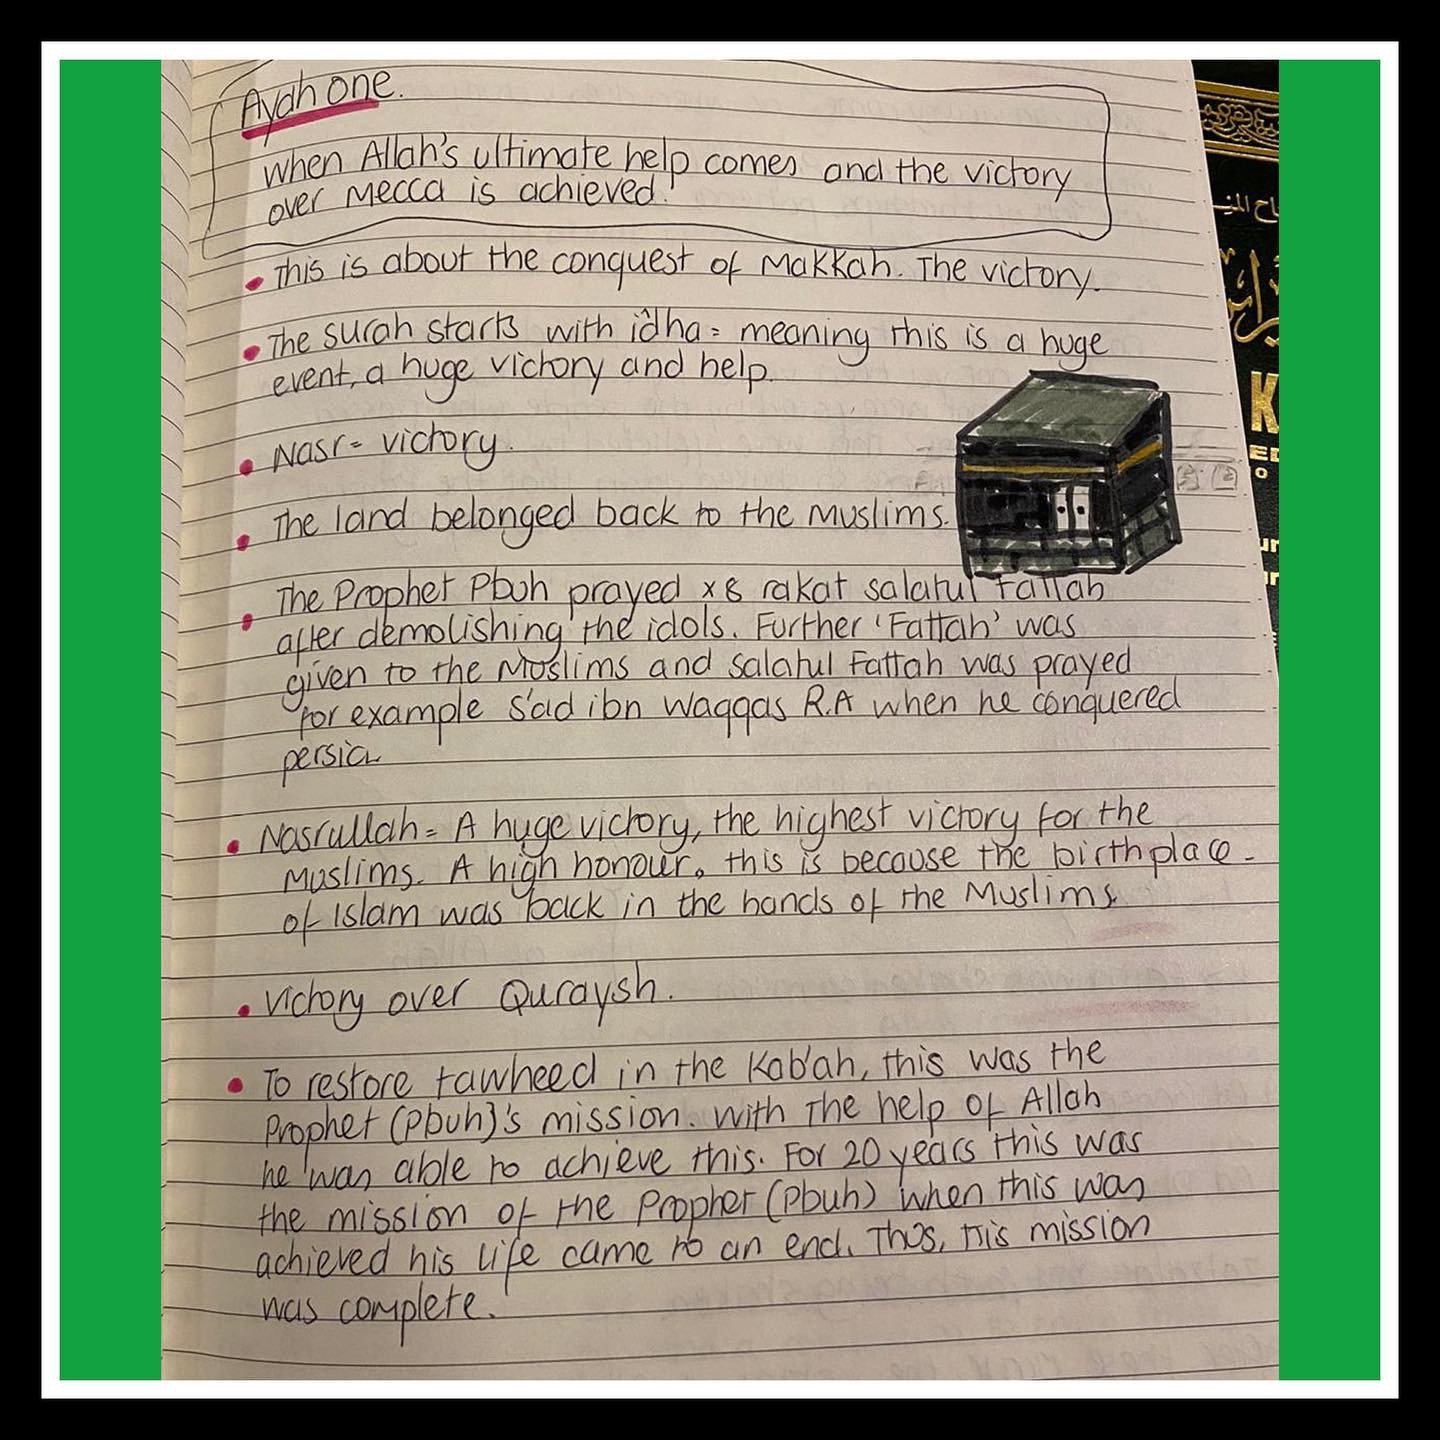 Ayah one.
When Allah's ultimate help comes and the victory
over Mecca is achieved.
This is about the conquest of Makkah. The victory.
The surah starts with idha = meaning this is a huge
event, a huge victory and help.
Nasr = victory.
The land belonged back to the Muslims.
The Prophet Pbuh prayed x8 rakat salatul Fattah
after demolishing the idols. Further 'Fattah' was
given to the Muslims and salatul Fattah was prayed
for example S'ad ibn Waqqas R.A when he conquered
persia.
Nasrullah = A huge victory, the highest victory for the
Muslims. A high honour, this is because the birthplace
of Islam was back in the hands of the Muslims.
Victory over Quraysh.
To restore tawheed in the Kab'ah, this was the
Prophet (Pbuh)'s mission. With the help of Allah
he was able to achieve this. For 20 years this was
the mission of the Prophet (Pbuh) when this was
achieved his life came to an end. Thus, his mission
was complete.
K